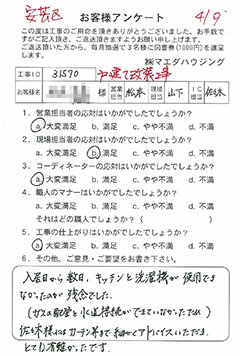 安芸区
お客様アンケート
4/9
この度は工事のご用命を頂きありがとうございました。お手数で
すがご記入頂き、ご返送頂きますようお願い申し上げます。
ご返送頂いた方から、毎月抽選で3名様に図書券(1000円)を進呈
します。
㈱マエダハウジング
工事ID 31570 戸建て改装工事
お客様名 様 営業担当 松本 現場担当 山下 IC担当 佐々木
1. 営業担当者の応対はいかがでしたでしょうか?
a. 大変満足 b. 満足 c. やや不満 d. 不満
2. 現場担当者の応対はいかがでしたでしょうか?
a. 大変満足 b. 満足 c. やや不満 d. 不満
3. コーディネーターの応対はいかがでしたでしょうか?
a. 大変満足 b. 満足 c. やや不満 d. 不満
4. 職人のマナーはいかがでしたでしょうか?
a. 大変満足 b. 満足 c. やや不満 d. 不満
それはどの職人でしょうか?( )
5. 工事の仕上がりはいかがでしたでしょうか?
a. 大変満足 b. 満足 c. やや不満 d. 不満
6. その他、ご意見・ご要望をお書き下さい。
入居日から数日、キッチンと洗濯機が使用でき
なかったのが残念でした。
(ガスの配管と水道接続ができていなかったため)
佐々木様にはカーテン等まで細かくアドバイスいただき、
とても有難かったです。